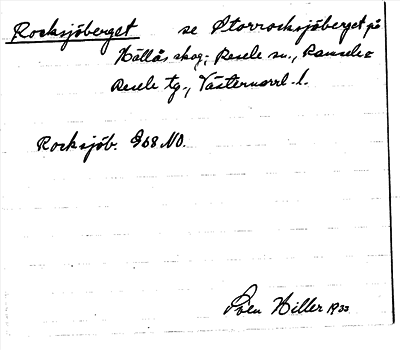 Rocksjöberget se Storrocksjöberget på
Hällås skog; Resele sn., Ramsele-
Resele tg., Västernorrl. l.
Rocksjöb. 268 NO.
Hiller 1933